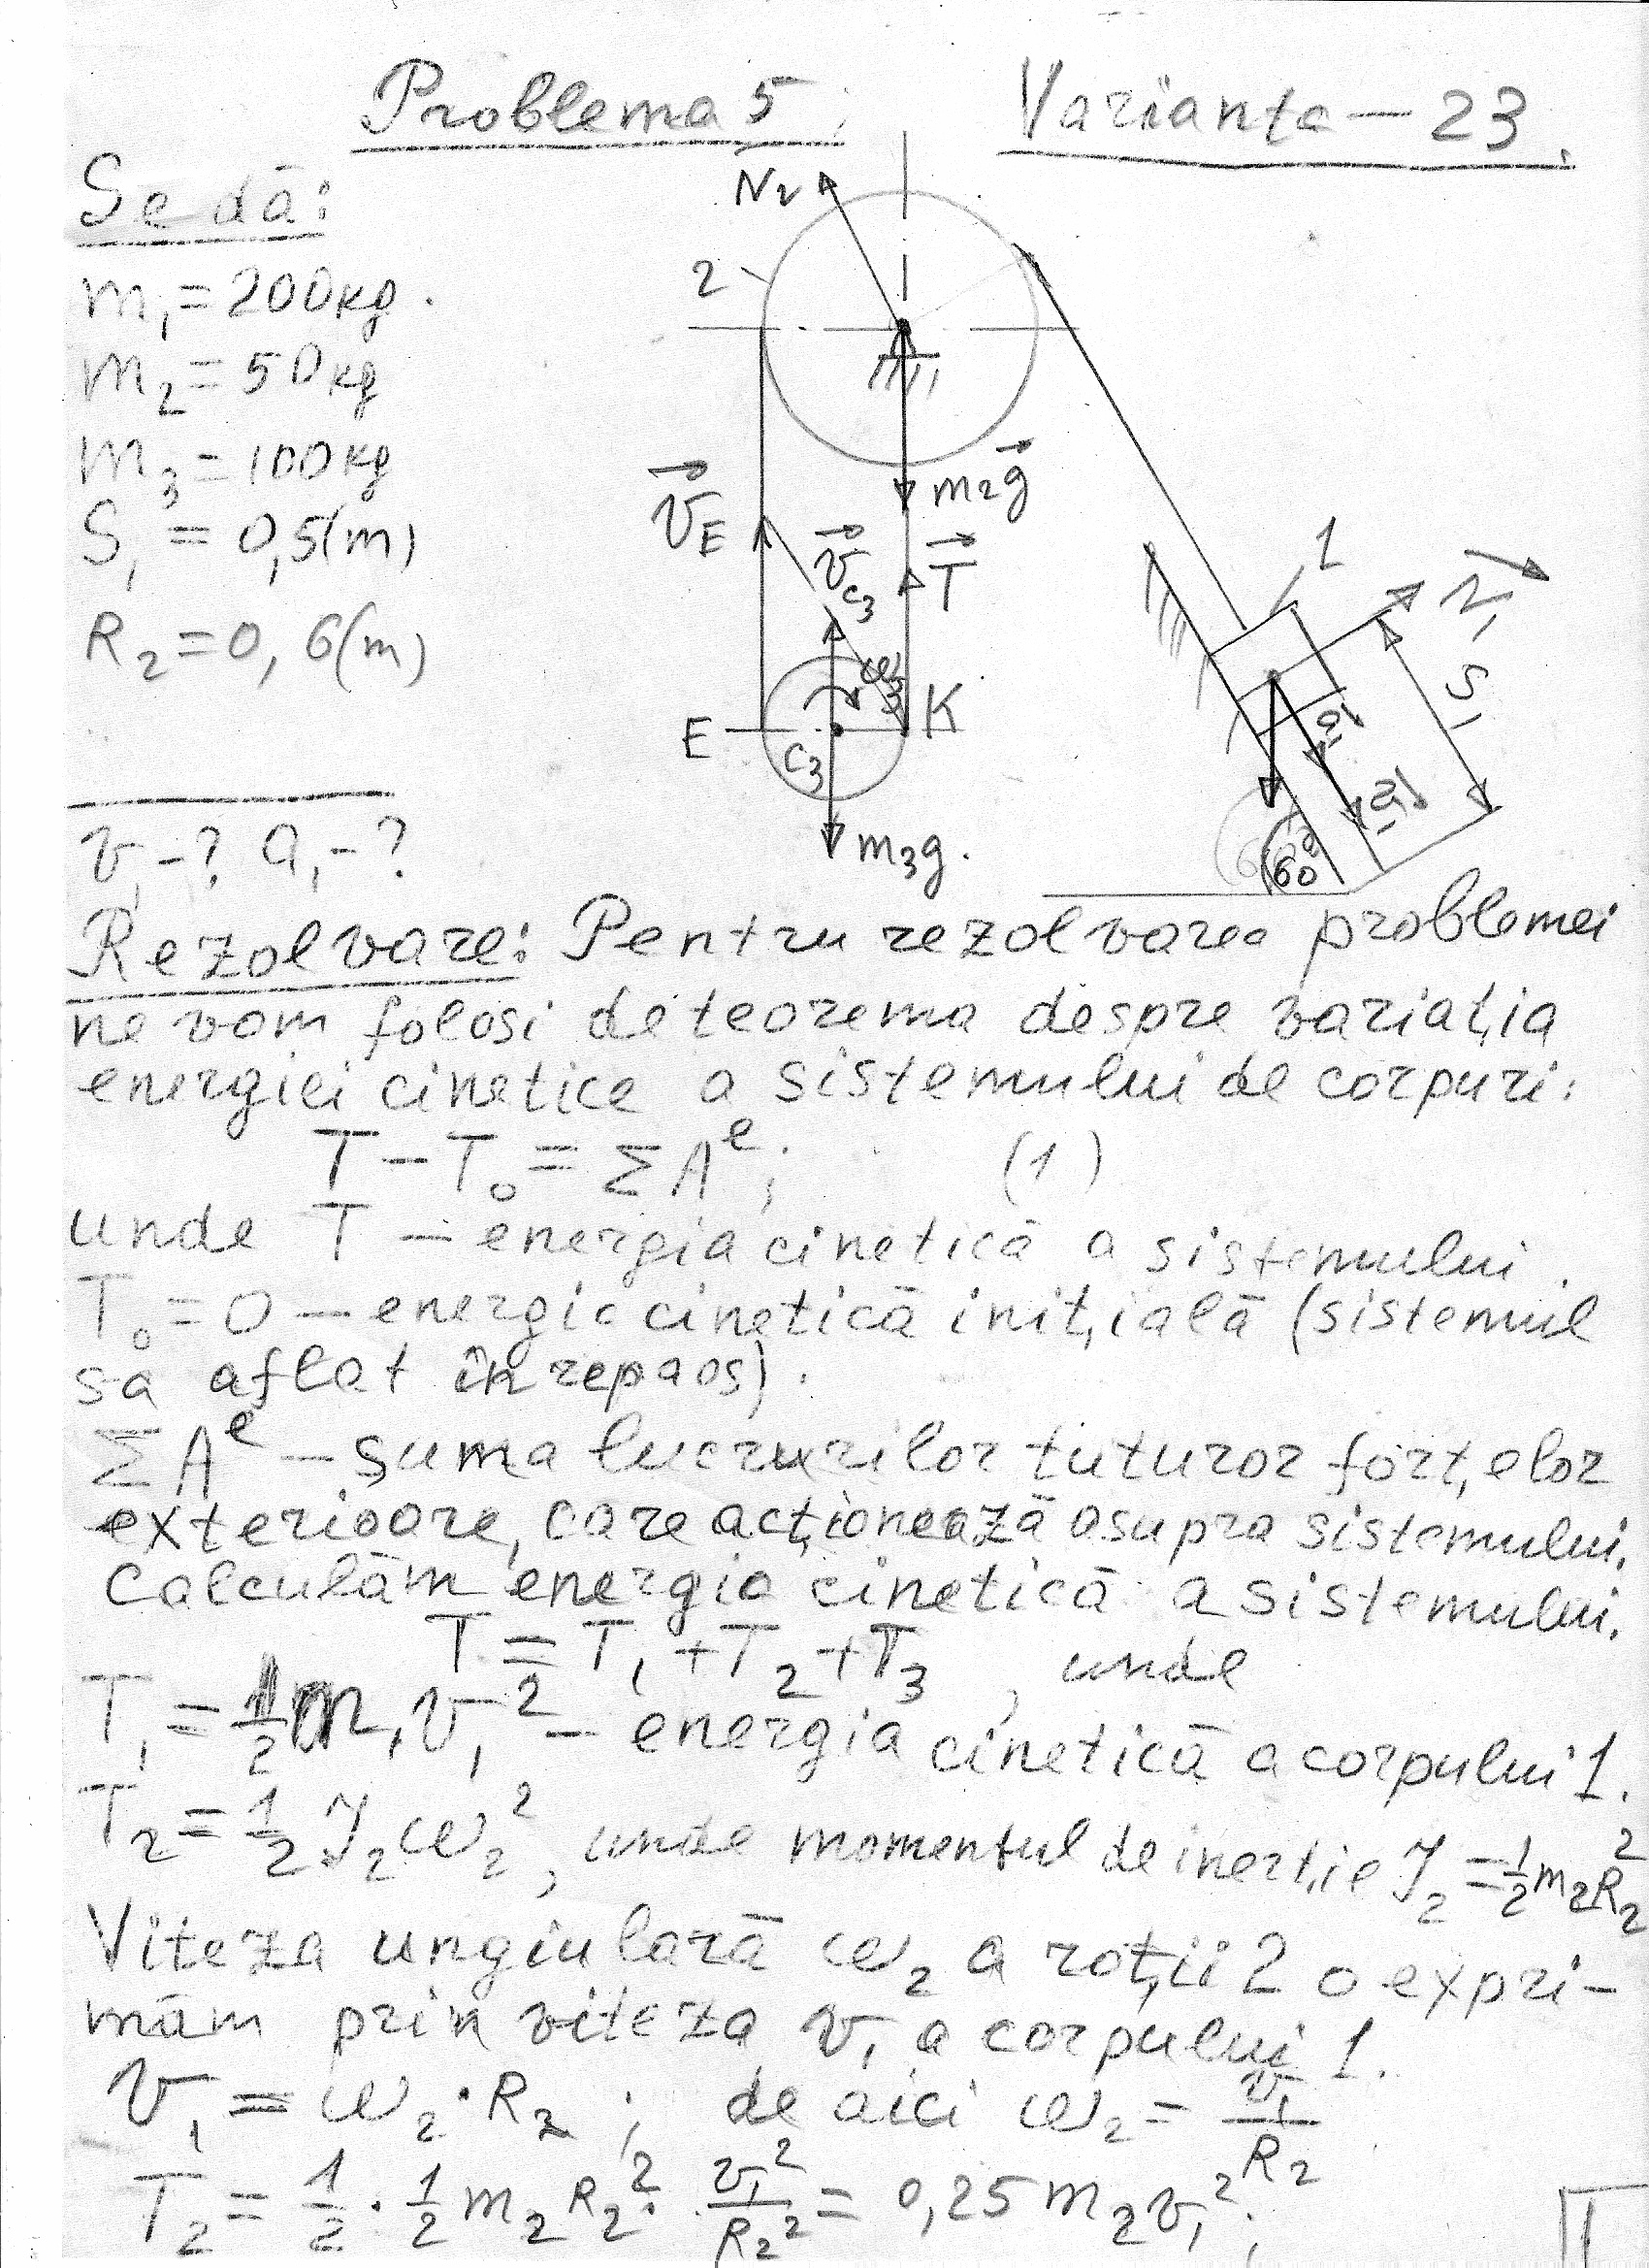 Problema 5; Varianta – 23.
Se dă:
m₁ = 200 kg.
m₂ = 50 kg
m₃ = 100 kg
S₁ = 0,5(m)
R₂ = 0,6(m)
v₁ - ? a₁ - ?
N₂
2
m₂g
v_E
v_C₃
T
ω₃
E
C₃
K
m₃g.
1
N₁
S₁
a₁
60
Rezolvare: Pentru rezolvarea problemei
ne vom folosi de teorema despre variația
energiei cinetice a sistemului de corpuri:
T – T₀ = ΣAᵉ; (1)
unde T – energia cinetică a sistemului.
T₀ = 0 – energia cinetică inițială (sistemul
sa aflat în repaos).
ΣAᵉ – suma lucrurilor tuturor forțelor
exterioare, care acționează asupra sistemului.
Calculăm energia cinetică a sistemului.
T = T₁ + T₂ + T₃, unde
T₁ = 1/2 m₁v₁² – energia cinetică a corpului 1.
T₂ = 1/2 J₂ω₂², unde momentul de inerție J₂ = 1/2 m₂R₂²
Viteza ungiulară ω₂ a roții 2 o expri-
măm prin viteza v₁ a corpului 1.
v₁ = ω₂·R₂; de aici ω₂ = v₁/R₂
T₂ = 1/2 · 1/2 m₂R₂² · v₁²/R₂² = 0,25 m₂v₁²;